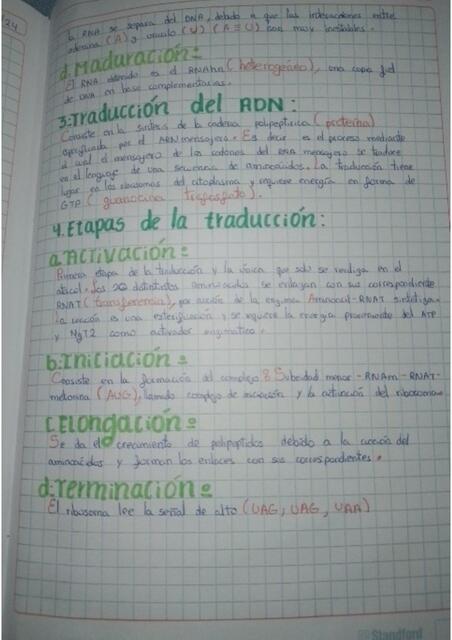 24
la RNA se separa del DNA, debido a que las interacciones entre
adenina (A) y uracilo (U) (A=U) son muy inestables.
d. Maduración:
El RNA obtenido es el RNAhn (heterogéneo), una copia fiel
de DNA en base complementarias.
3. Traducción del ADN:
Consiste en la síntesis de la cadena polipeptica (proteína)
especificada por el ARN mensajero. Es decir es el proceso mediante
el cual el mensajero de los codones del RNA mensajero se traduce
en el lenguaje de una secuencia de aminoácidos. La traducción tiene
lugar en los ribosomas del citoplasma y requiere energía en forma de
GTP (guanocina trifosfato).
4. Etapas de la traducción:
a. Activación:
Primera etapa de la traducción y la única que solo se realiza en el
citosol. Los 20 distintos aminoácidos se enlazan con sus correspondiente
RNAT (transferencia), por acción de la enzima Aminoacil-RNAT
La reacción es una esterificación y se requiere la energía proveniente del ATP
y Mg+2 como activador enzimático.
b. Iniciación:
Consiste en la formación del complejo Subunidad menor - RNAm - RNAT-
metionina (AUG), llamado complejo de iniciación y la activación del ribosoma
c. Elongación:
Se da el crecimiento de polipeptidos debido a la unión del
aminoácidos y forman los enlaces con sus correspondientes.
d. Terminación:
El ribosoma lee la señal de alto (UAG, UAG, UAA)
Standford